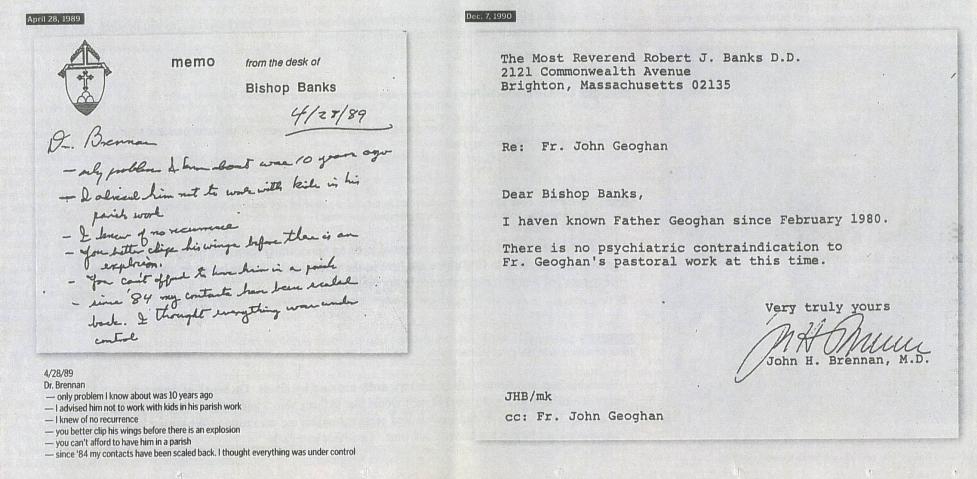 April 28, 1989
memo from the desk of
Bishop Banks
4/28/89
Dr. Brennan
– only problem I know about was 10 years ago
– I advised him not to work with kids in his
parish work
– I knew of no recurrence
– You better clip his wings before there is an
explosion.
– You can't afford to have him in a parish
– since '84 my contacts have been scaled
back. I thought everything was under
control
4/28/89
Dr. Brennan
— only problem I know about was 10 years ago
— I advised him not to work with kids in his parish work
— I knew of no recurrence
— you better clip his wings before there is an explosion
— you can't afford to have him in a parish
— since '84 my contacts have been scaled back. I thought everything was under control
Dec. 7, 1990
The Most Reverend Robert J. Banks D.D.
2121 Commonwealth Avenue
Brighton, Massachusetts 02135
Re: Fr. John Geoghan
Dear Bishop Banks,
I haven known Father Geoghan since February 1980.
There is no psychiatric contraindication to
Fr. Geoghan's pastoral work at this time.
Very truly yours
J H Brennan
John H. Brennan, M.D.
JHB/mk
cc: Fr. John Geoghan